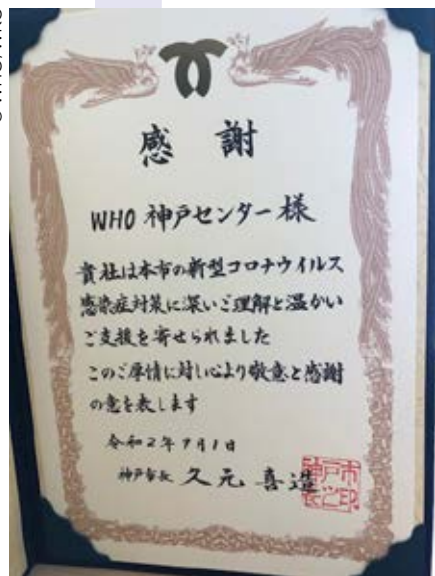 感謝
WHO 神戸センター様
貴社は本市の新型コロナウイルス
感染症対策に深いご理解と温かい
ご支援を寄せられました
このご厚情に対し心より敬意と感謝
の意を表します
令和2年7月1日
神戸市長 久元 喜造
神戸市長之印